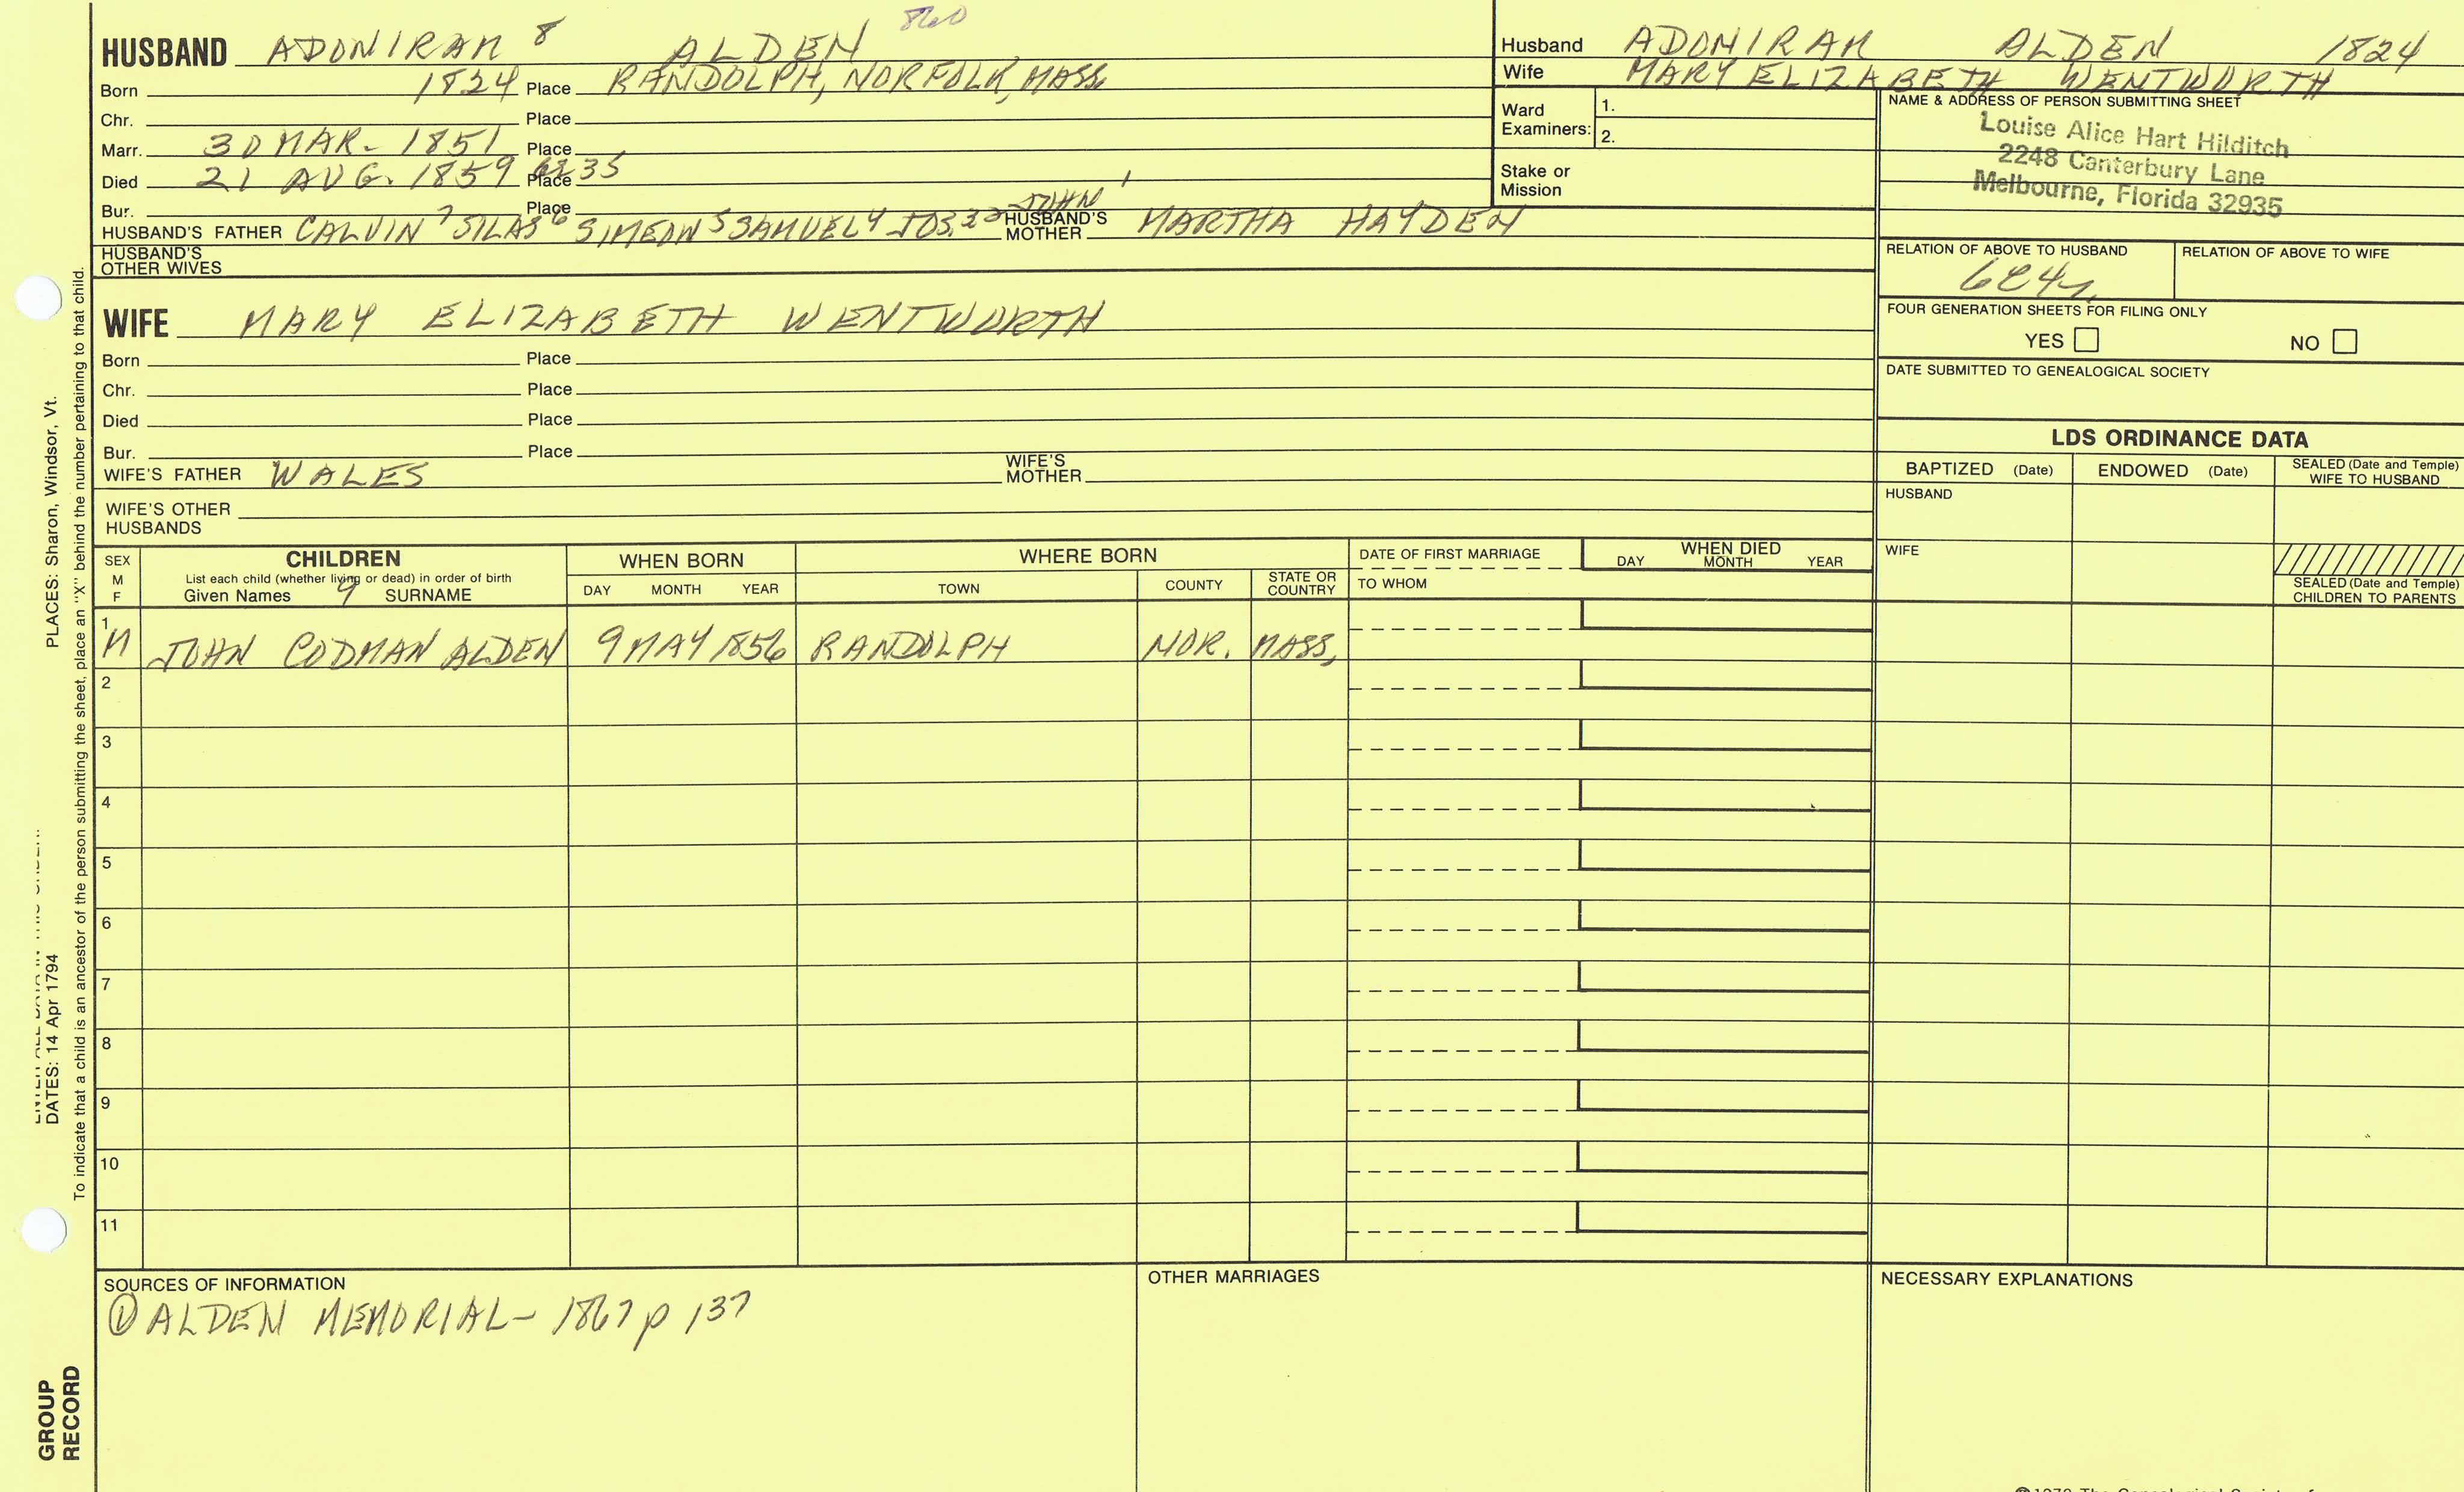 860
HUSBAND ADONIRAM 8 ALDEN
Born 1824 Place RANDOLPH, NORFOLK, MASS
Chr. Place
Marr. 30 MAR. 1851 Place
Died 21 AUG. 1859 Æ 35 Place
Bur. Place
HUSBAND'S FATHER CALVIN 7 SILAS 6 SIMEON 5 SAMUEL 4 JOS. 3 2 JOHN 1 HUSBAND'S MOTHER MARTHA HAYDEN
HUSBAND'S OTHER WIVES
WIFE MARY ELIZABETH WENTWORTH
Born Place
Chr. Place
Died Place
Bur. Place
WIFE'S FATHER WALES WIFE'S MOTHER
WIFE'S OTHER HUSBANDS
Husband ADONIRAM ALDEN 1824
Wife MARY ELIZABETH WENTWORTH
Ward Examiners: 1. 2.
Stake or Mission
NAME & ADDRESS OF PERSON SUBMITTING SHEET
Louise Alice Hart Hilditch
2248 Canterbury Lane
Melbourne, Florida 32935
RELATION OF ABOVE TO HUSBAND RELATION OF ABOVE TO WIFE
6C4r
FOUR GENERATION SHEETS FOR FILING ONLY
YES NO
DATE SUBMITTED TO GENEALOGICAL SOCIETY
LDS ORDINANCE DATA
BAPTIZED (Date) ENDOWED (Date) SEALED (Date and Temple) WIFE TO HUSBAND
HUSBAND
WIFE
SEALED (Date and Temple) CHILDREN TO PARENTS
SEX M F CHILDREN WHEN BORN WHERE BORN DATE OF FIRST MARRIAGE WHEN DIED
List each child (whether living or dead) in order of birth
Given Names 9 SURNAME DAY MONTH YEAR TOWN COUNTY STATE OR COUNTRY TO WHOM DAY MONTH YEAR
1 M JOHN CODMAN ALDEN 9 MAY 1856 RANDOLPH NOR. MASS.
2
3
4
5
6
7
8
9
10
11
SOURCES OF INFORMATION
① ALDEN MEMORIAL - 1867 p 137
OTHER MARRIAGES
NECESSARY EXPLANATIONS
PLACES: Sharon, Windsor, Vt.
DATES: 14 Apr 1794
To indicate that a child is an ancestor of the person submitting the sheet, place an "X" behind the number pertaining to that child.
GROUP RECORD